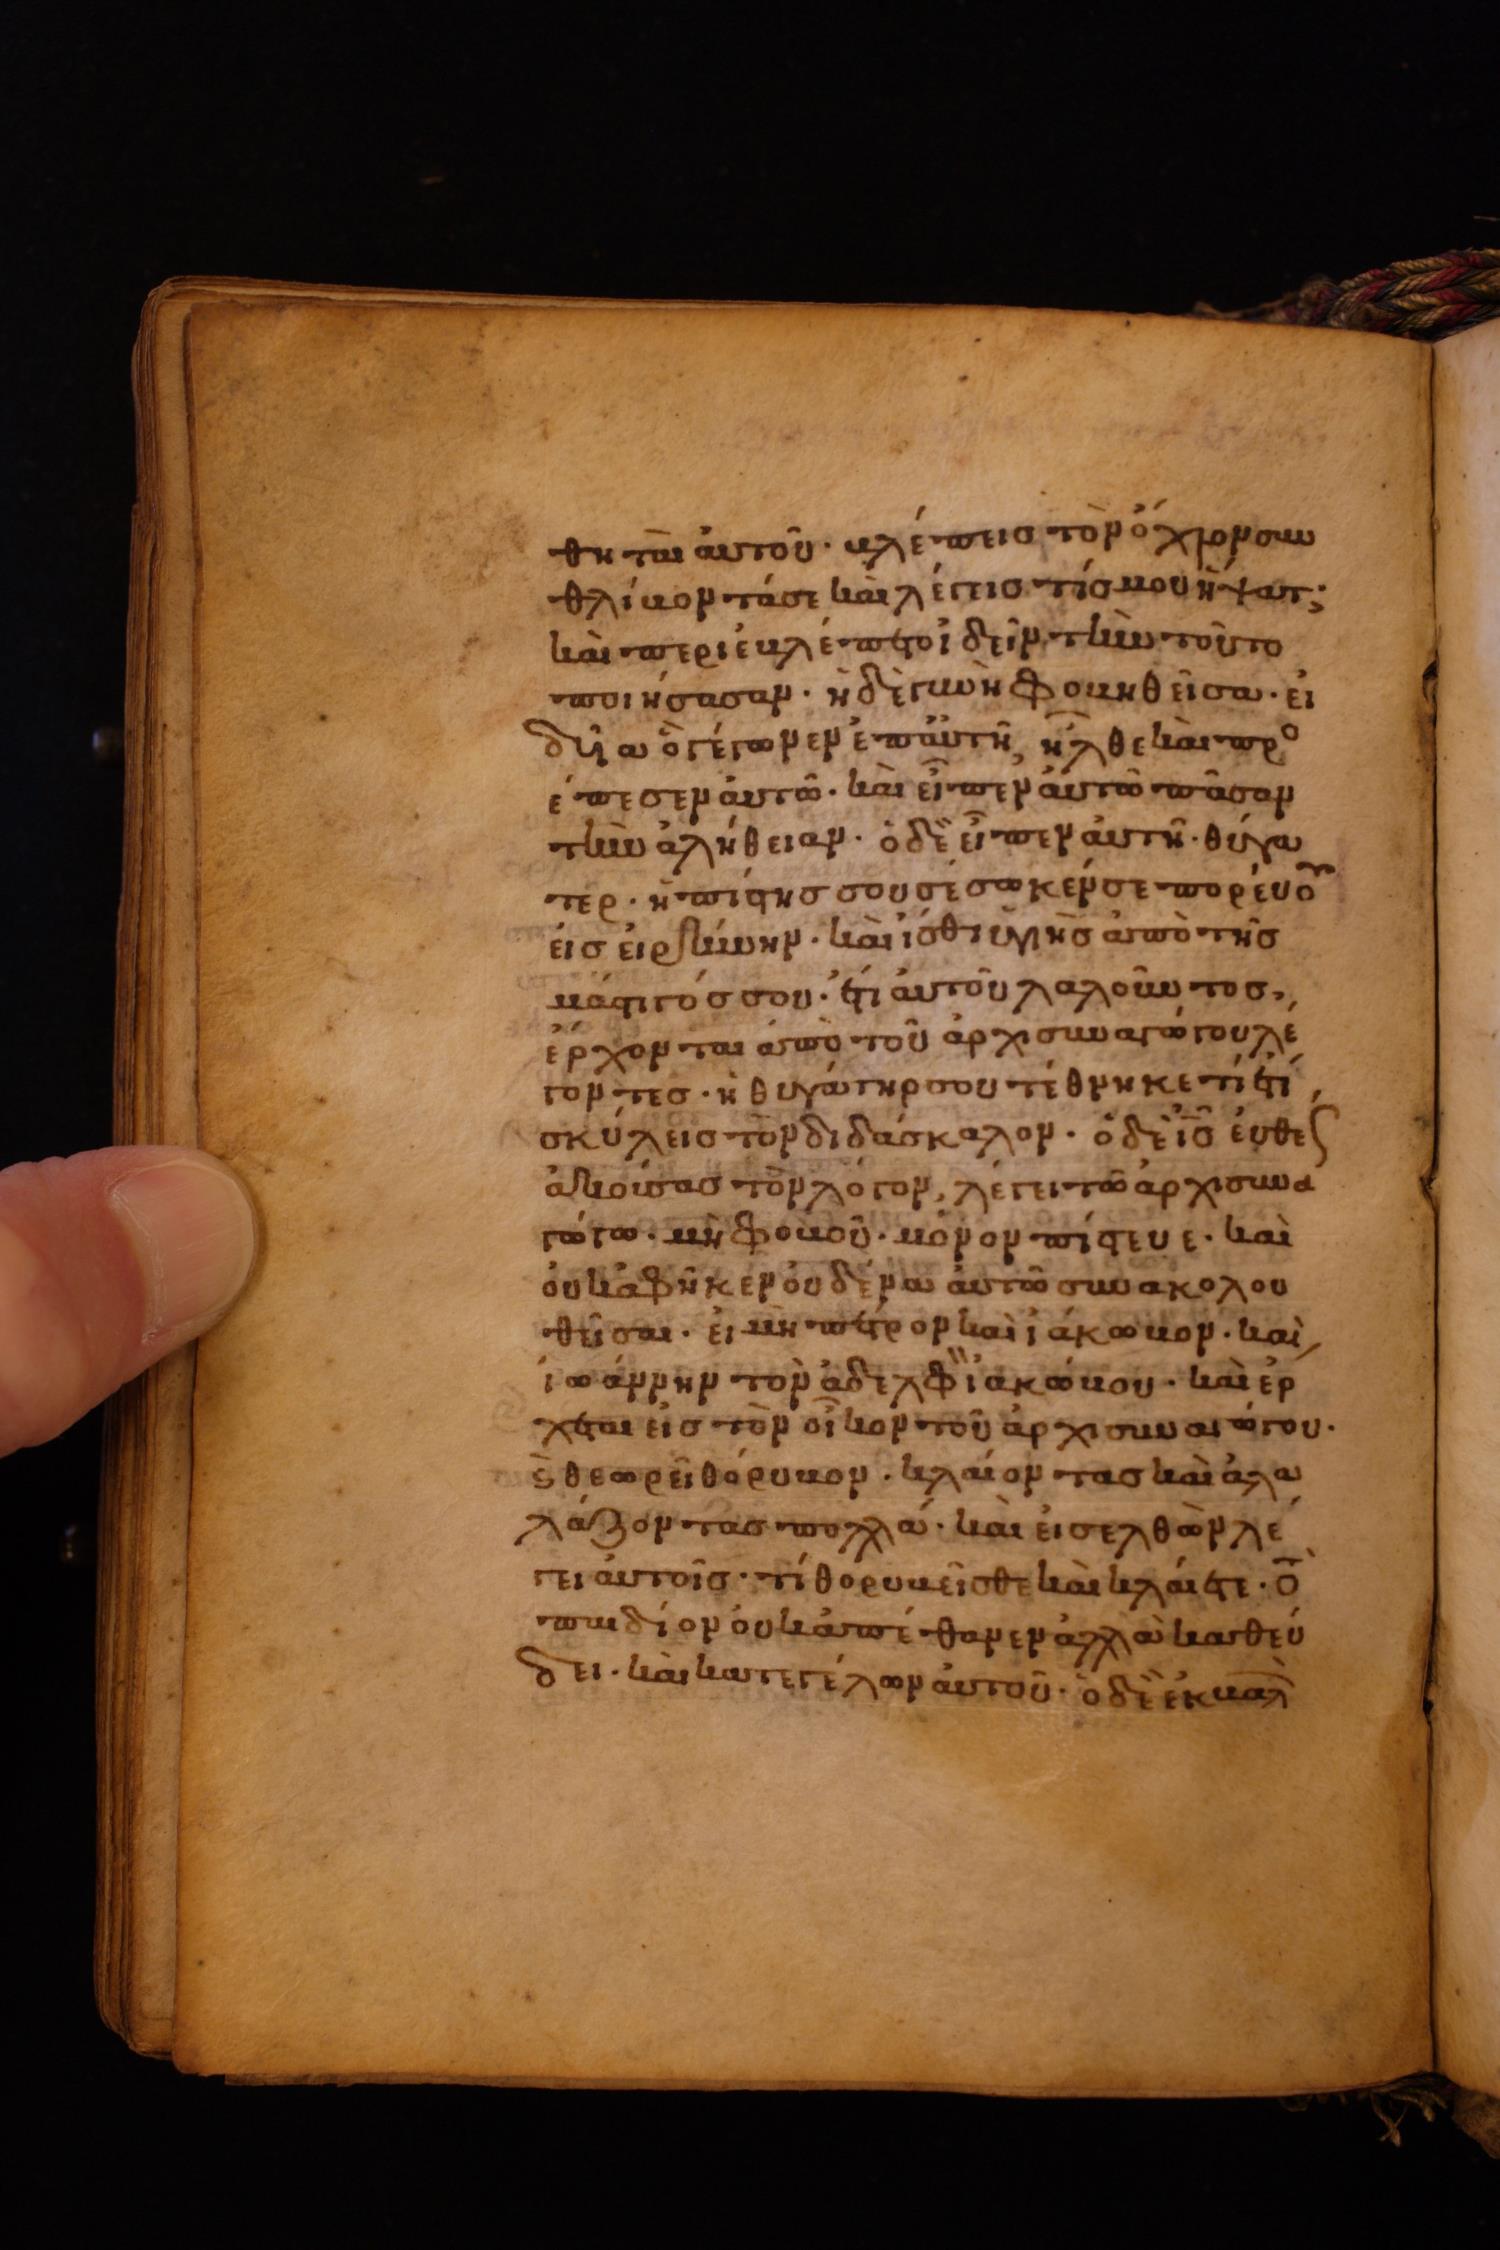 θηται αυτοῦ· βλέπεις τὸν ὄχλον συν
θλίβοντά σε καὶ λέγεις τίς μου ἥψατο;
καὶ περιεβλέπετο ἰδεῖν τὴν τοῦτο
ποιήσασαν· ἡ δὲ γυνὴ φοβηθεῖσα· εἰ
δυῖα ὃ γέγονεν ἐπ αὐτῆ, ἦλθε καὶ προ
έπεσεν ἀυτῶ· καὶ εἶπεν ἀυτῶ πᾶσαν
τὴν ἀλήθειαν· ὁ δὲ εἶπεν ἀυτῆ· θύγα
τερ· ἡ πίστης σου σέσωκέν σε πορέυου
εἰς εἰρήνην· καὶ ἴσθι ὑγιὴς ἀπὸ τῆς
μάστιγός σου· ἔτι ἀυτοῦ λαλοῦντος,
ἔρχονται ἀπὸ τοῦ ἀρχισυναγώγου λέ
γοντες· ἡ θυγάτηρ σου τέθνηκε τί ἔτι
σκύλεις τὸν διδάσκαλον· ὁ δὲ ις εὐθες
ἀκούσας τὸν λόγον, λέγει τῶ ἀρχισυνα
γώγω· μὴ φοβοῦ· μόνον πίστευε· καὶ
ὀυκ ἀφῆκεν ὀυδένα ἀυτῶ συνακολου
θῆσαι· εἰ μὴ πέτρον καὶ ἰάκωβον· καὶ
ἰωάννην τὸν ἀδελφὸν ἰακώβου· καὶ ἔρ
χεται εἰς τὸν οἶκον τοῦ ἀρχισυναγώγου·
ϗ θεωρεῖ θόρυβον· κλαίοντας καὶ ἀλα
λάζοντας πολλά· καὶ εἰσελθὼν λέ
γει ἀυτοῖς· τί θορυβεῖσθε καὶ κλάιετε· τὸ
παιδίον ὀυκ ἀπέθανεν ἀλλὰ καθεύ
δει· καὶ κατεγέλων ἀυτοῦ· ὁ δὲ ἐκβαλ